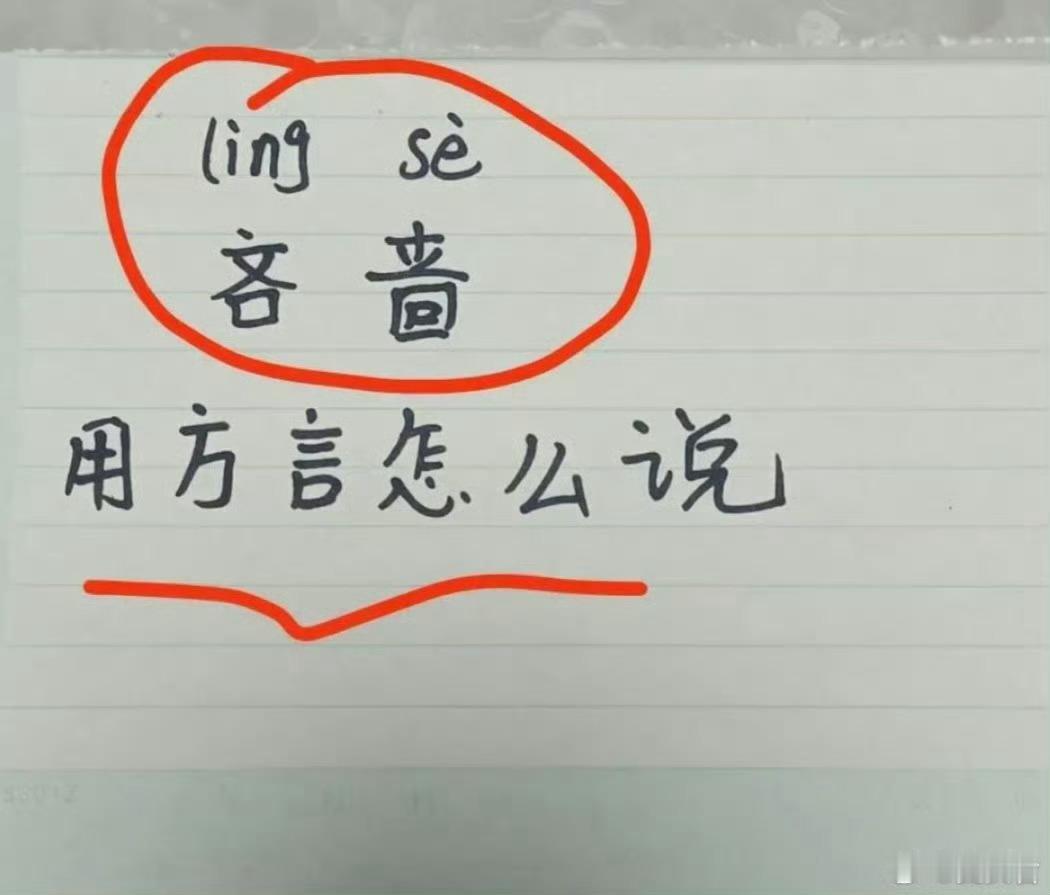 ling sè
吝啬
用方言怎么说